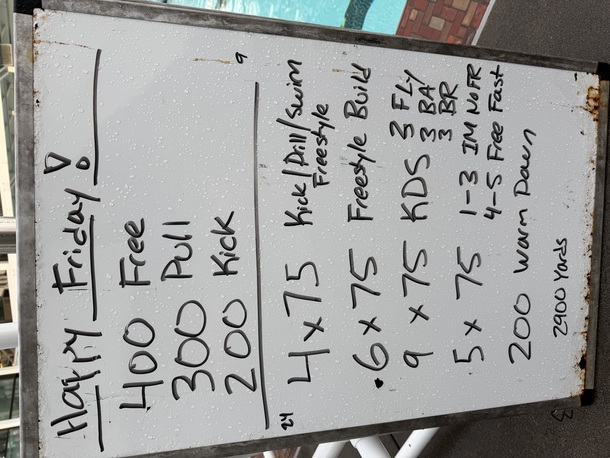 Happy Friday!
400 Free
300 Pull
200 Kick
9
24
4 x 75 Kick/Drill/Swim
Freestyle
6 x 75 Freestyle Build
9 x 75 KDS 3 FLY
3 BA
3 BR
5 x 75 1-3 IM No FR
4-5 Free Fast
200 Warm Down
2900 Yards